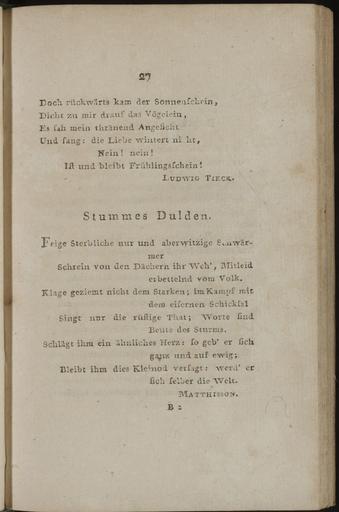 27
Doch rückwärts kam der Sonnenſchein,
Dicht zu mir drauf das Vögelein,
Es ſah mein thränend Angeſicht
Und ſang: die Liebe wintert nicht,
Nein! nein!
Iſt und bleibt Frühlingsſchein!
LUDWIG TIECK.
Stummes Dulden.
Feige Sterbliche nur und aberwitzige Schwär-
mer
Schrein von den Dächern ihr Weh', Mitleid
erbettelnd vom Volk.
Klage geziemt nicht dem Starken; im Kampf mit
dem eiſernen Schickſal
Singt nur die rüſtige That; Worte ſind
Beute des Sturms.
Schlägt ihm ein ähnliches Herz: ſo geb' er ſich
ganz und auf ewig;
Bleibt ihm dies Kleinod verſagt: werd' er
ſich ſelber die Welt.
MATTHISSON.
B 2